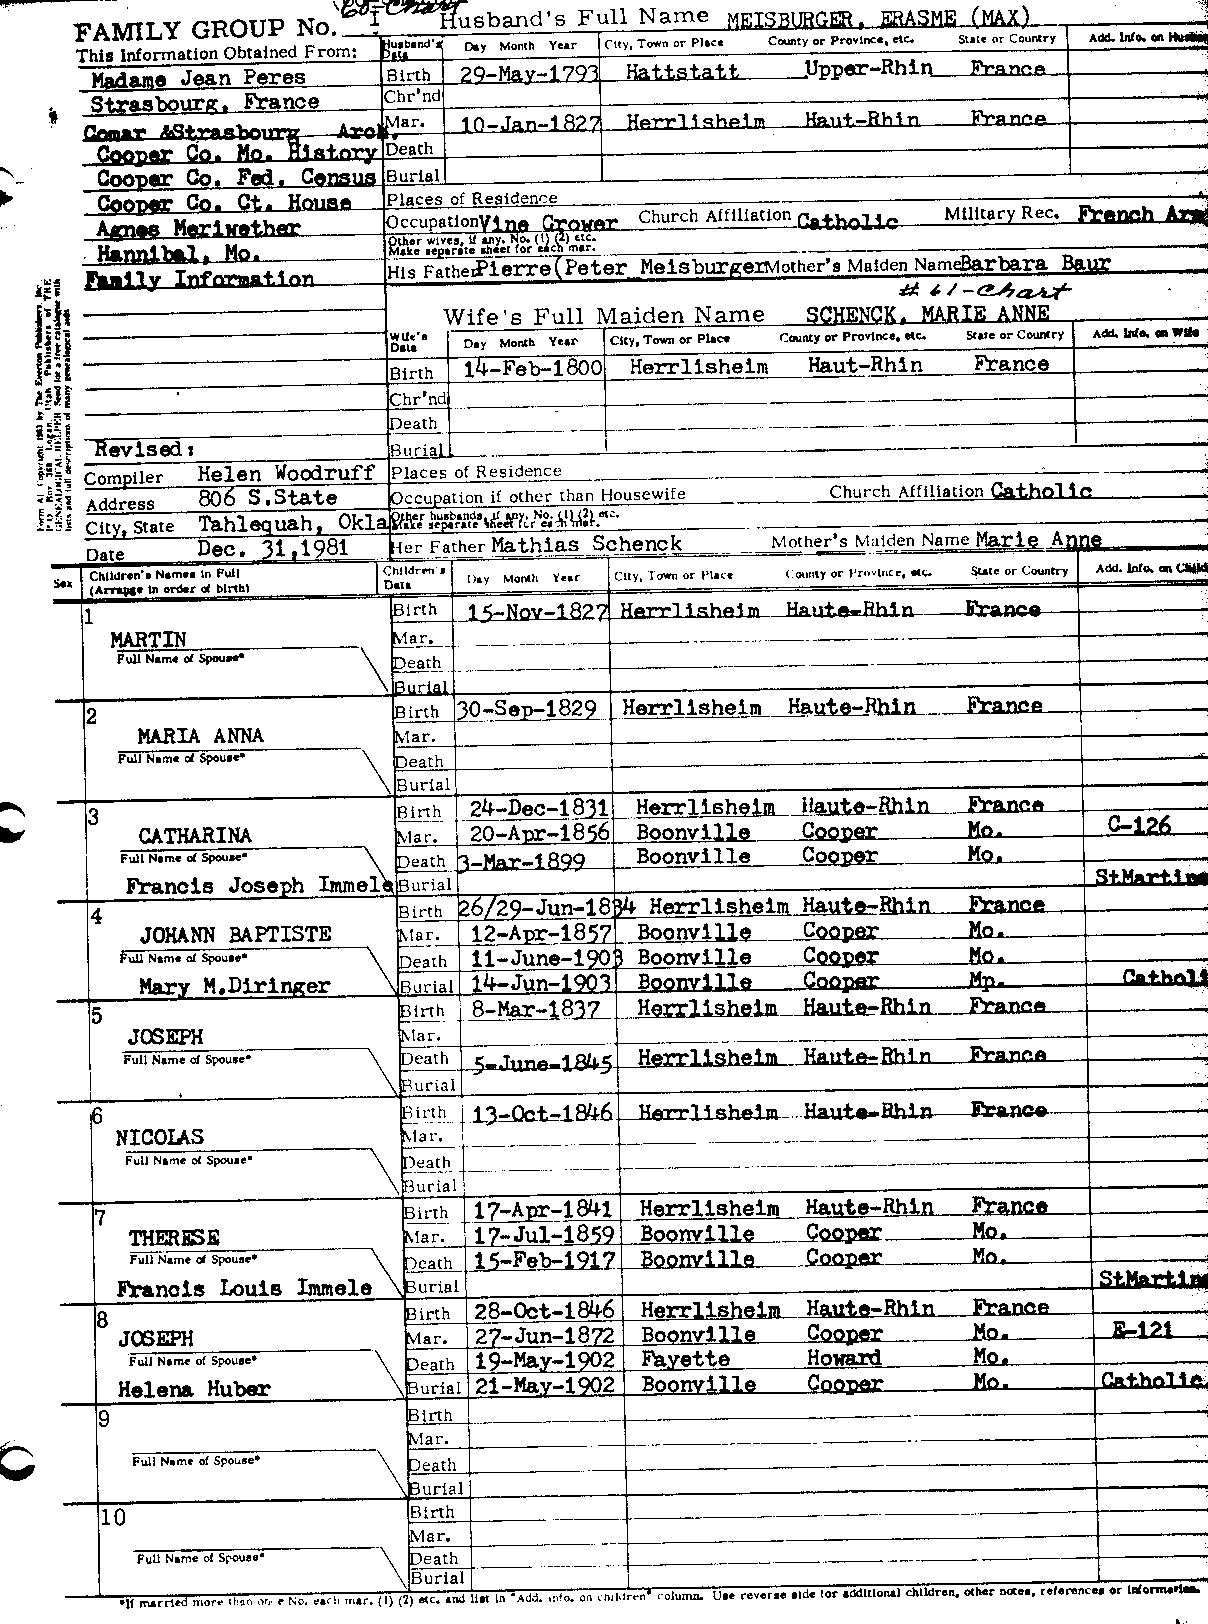 60-Chart
FAMILY GROUP No. I Husband's Full Name MEISBURGER, ERASME (MAX)
This Information Obtained From: Husband's Data Day Month Year City, Town or Place County or Province, etc. State or Country Add. Info. on Husband
Madame Jean Peres Birth 29-May-1793 Hattstatt Upper-Rhin France
Strasbourg, France Chr'nd
Comar &Strasbourg Arch. Mar. 10-Jan-1827 Herrlisheim Haut-Rhin France
Cooper Co. Mo. History Death
Cooper Co. Fed. Census Burial
Cooper Co. Ct. House Places of Residence
Agnes Meriwether Occupation Vine Grower Church Affiliation Catholic Military Rec. French Arm
Hannibal, Mo. Other wives, if any. No. (1) (2) etc. Make separate sheet for each mar.
Family Information His Father Pierre(Peter Meisburger Mother's Maiden Name Barbara Baur
# 61-Chart
Wife's Full Maiden Name SCHENCK, MARIE ANNE
Wife's Data Day Month Year City, Town or Place County or Province, etc. State or Country Add. Info. on Wife
Birth 14-Feb-1800 Herrlisheim Haut-Rhin France
Chr'nd
Death
Revised: Burial
Compiler Helen Woodruff Places of Residence
Address 806 S.State Occupation if other than Housewife Church Affiliation Catholic
City, State Tahlequah, Okla Other husbands, if any. No. (1) (2) etc. Make separate sheet for each mar.
Date Dec. 31,1981 Her Father Mathias Schenck Mother's Maiden Name Marie Anne
Form A1 Copyright 1963 by The Everton Publishers, Inc.
P.O. Box 368 Logan, Utah Publishers of THE
GENEALOGICAL HELPER Send for a free catalogue with
lists and full descriptions of many genealogical aids
Sex Children's Names in Full (Arrange in order of birth) Children's Data Day Month Year City, Town or Place County or Province, etc. State or Country Add. Info. on Child
1 Birth 15-Nov-1827 Herrlisheim Haute-Rhin France
MARTIN Mar.
Full Name of Spouse* Death
Burial
2 Birth 30-Sep-1829 Herrlisheim Haute-Rhin France
MARIA ANNA Mar.
Full Name of Spouse* Death
Burial
3 Birth 24-Dec-1831 Herrlisheim Haute-Rhin France
CATHARINA Mar. 20-Apr-1856 Boonville Cooper Mo. C-126
Full Name of Spouse* Death 3-Mar-1899 Boonville Cooper Mo.
Francis Joseph Immele Burial StMartins
4 Birth 26/29-Jun-1834 Herrlisheim Haute-Rhin France
JOHANN BAPTISTE Mar. 12-Apr-1857 Boonville Cooper Mo.
Full Name of Spouse* Death 11-June-1903 Boonville Cooper Mo.
Mary M.Diringer Burial 14-Jun-1903 Boonville Cooper Mp. Catholi
5 Birth 8-Mar-1837 Herrlisheim Haute-Rhin France
JOSEPH Mar.
Full Name of Spouse* Death 5-June-1845 Herrlisheim Haute-Rhin France
Burial
6 Birth 13-Oct-1846 Herrlisheim Haute-Rhin France
NICOLAS Mar.
Full Name of Spouse* Death
Burial
7 Birth 17-Apr-1841 Herrlisheim Haute-Rhin France
THERESE Mar. 17-Jul-1859 Boonville Cooper Mo.
Full Name of Spouse* Death 15-Feb-1917 Boonville Cooper Mo.
Francis Louis Immele Burial StMartin
8 Birth 28-Oct-1846 Herrlisheim Haute-Rhin France
JOSEPH Mar. 27-Jun-1872 Boonville Cooper Mo. E-121
Full Name of Spouse* Death 19-May-1902 Fayette Howard Mo.
Helena Huber Burial 21-May-1902 Boonville Cooper Mo. Catholic
9 Birth
Mar.
Full Name of Spouse* Death
Burial
10 Birth
Mar.
Full Name of Spouse* Death
Burial
*If married more than one No. each mar. (1) (2) etc. and list in "Add. info. on children" column. Use reverse side for additional children, other notes, references or information.